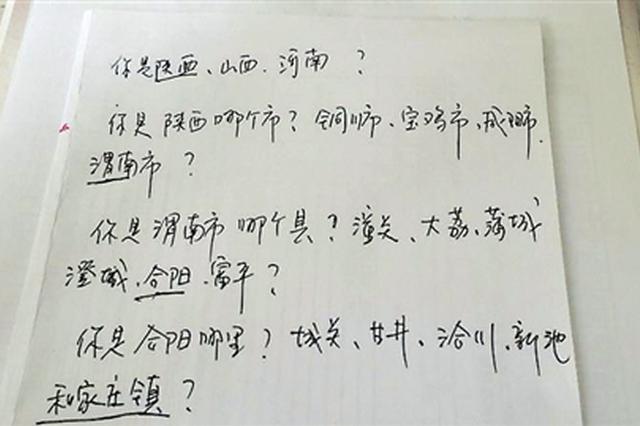 你是陕西、山西、河南？
你是陕西哪个市？铜川市、宝鸡市、咸阳市、
渭南市？
你是渭南市哪个县？潼关、大荔、蒲城
澄城、合阳、富平？
你是合阳哪里？城关、甘井、洽川、新池
和家庄镇？